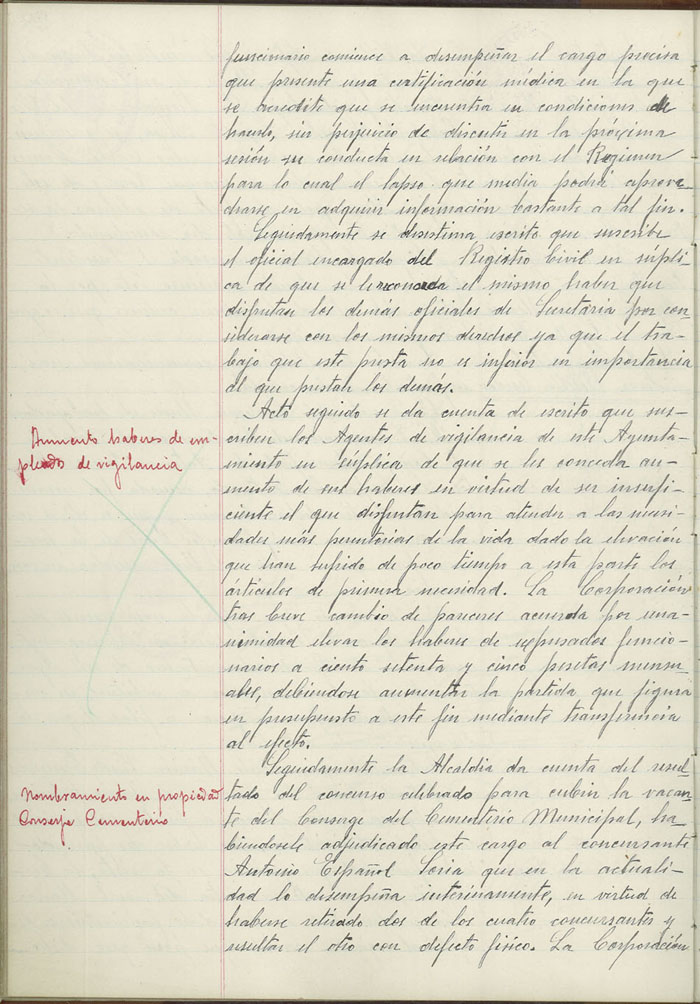 funcionario comience a desempeñar el cargo precisa
que presente una certificación médica en la que
se acredite que se encuentra en condiciones de
hacerlo, sin perjuicio de discutir en la próxima
sesión su conducta en relación con el Regimen
para lo cual el lapso que media podrá aprove-
charse en adquirir información bastante a tal fin.
Seguidamente se desestima escrito que suscribe
el oficial encargado del Registro Civil en súpli-
ca de que se le reconozca el mismo haber que
disfrutan los demás oficiales de Secretaria por con-
siderarse con los mismos derechos ya que el tra-
bajo que este presta no es inferior en importancia
al que prestan los demás.
Acto seguido se da cuenta de escrito que sus-
Aumento haberes de em-
criben los Agentes de vigilancia de este Ayunta-
pleados de vigilancia
miento en súplica de que se les conceda au-
mento de sus haberes en virtud de ser insufi-
ciente el que disfrutan para atender a las necesi-
dades más perentorias de la vida dado la elevación
que han sufrido de poco tiempo a esta parte los
artículos de primera necesidad. La Corporación
tras breve cambio de pareceres acuerda por una-
nimidad elevar los haberes de expresados funcio-
narios a ciento setenta y cinco pesetas mensu-
ales, debiendose aumentar la partida que figura
en presupuesto a este fin mediante transferencia
al efecto.
Seguidamente la Alcaldia da cuenta del resul-
Nombramiento en propiedad
tado del concurso celebrado para cubrir la vacan-
Conserje Cementerio
te del Conserge del Cementerio Municipal, ha-
biendosele adjudicado este cargo al concursante
Antonio Español Soria que en la actuali-
dad lo desempeña interinamente, en virtud de
haberse retirado dos de los cuatro concursantes y
resultar el otro con defecto fisico. La Corporación